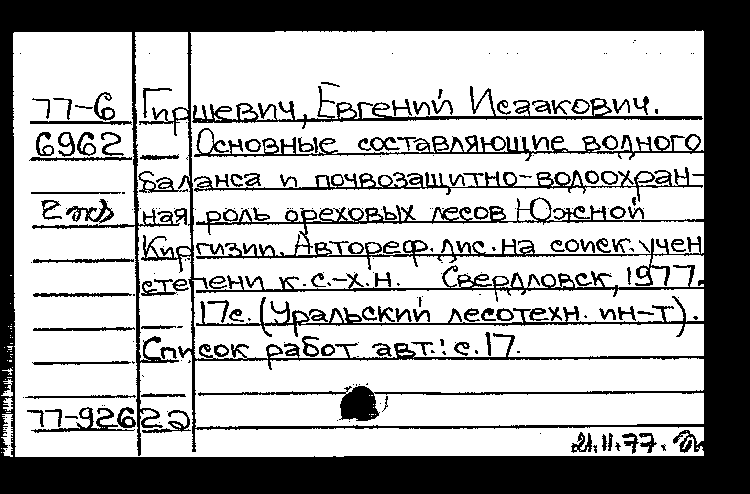 77-6 Гиршевич, Евгений Исаакович.
6962 — Основные составляющие водного
баланса и почвозащитно-водоохран-
2 экз ная роль ореховых лесов Южной
Киргизии. Автореф. дис. на соиск. учен
степени к.с.-х.н. Свердловск, 1977.
17с. (Уральский лесотехн. ин-т).
Список работ авт.: с. 17.
77-92622
21.11.77.